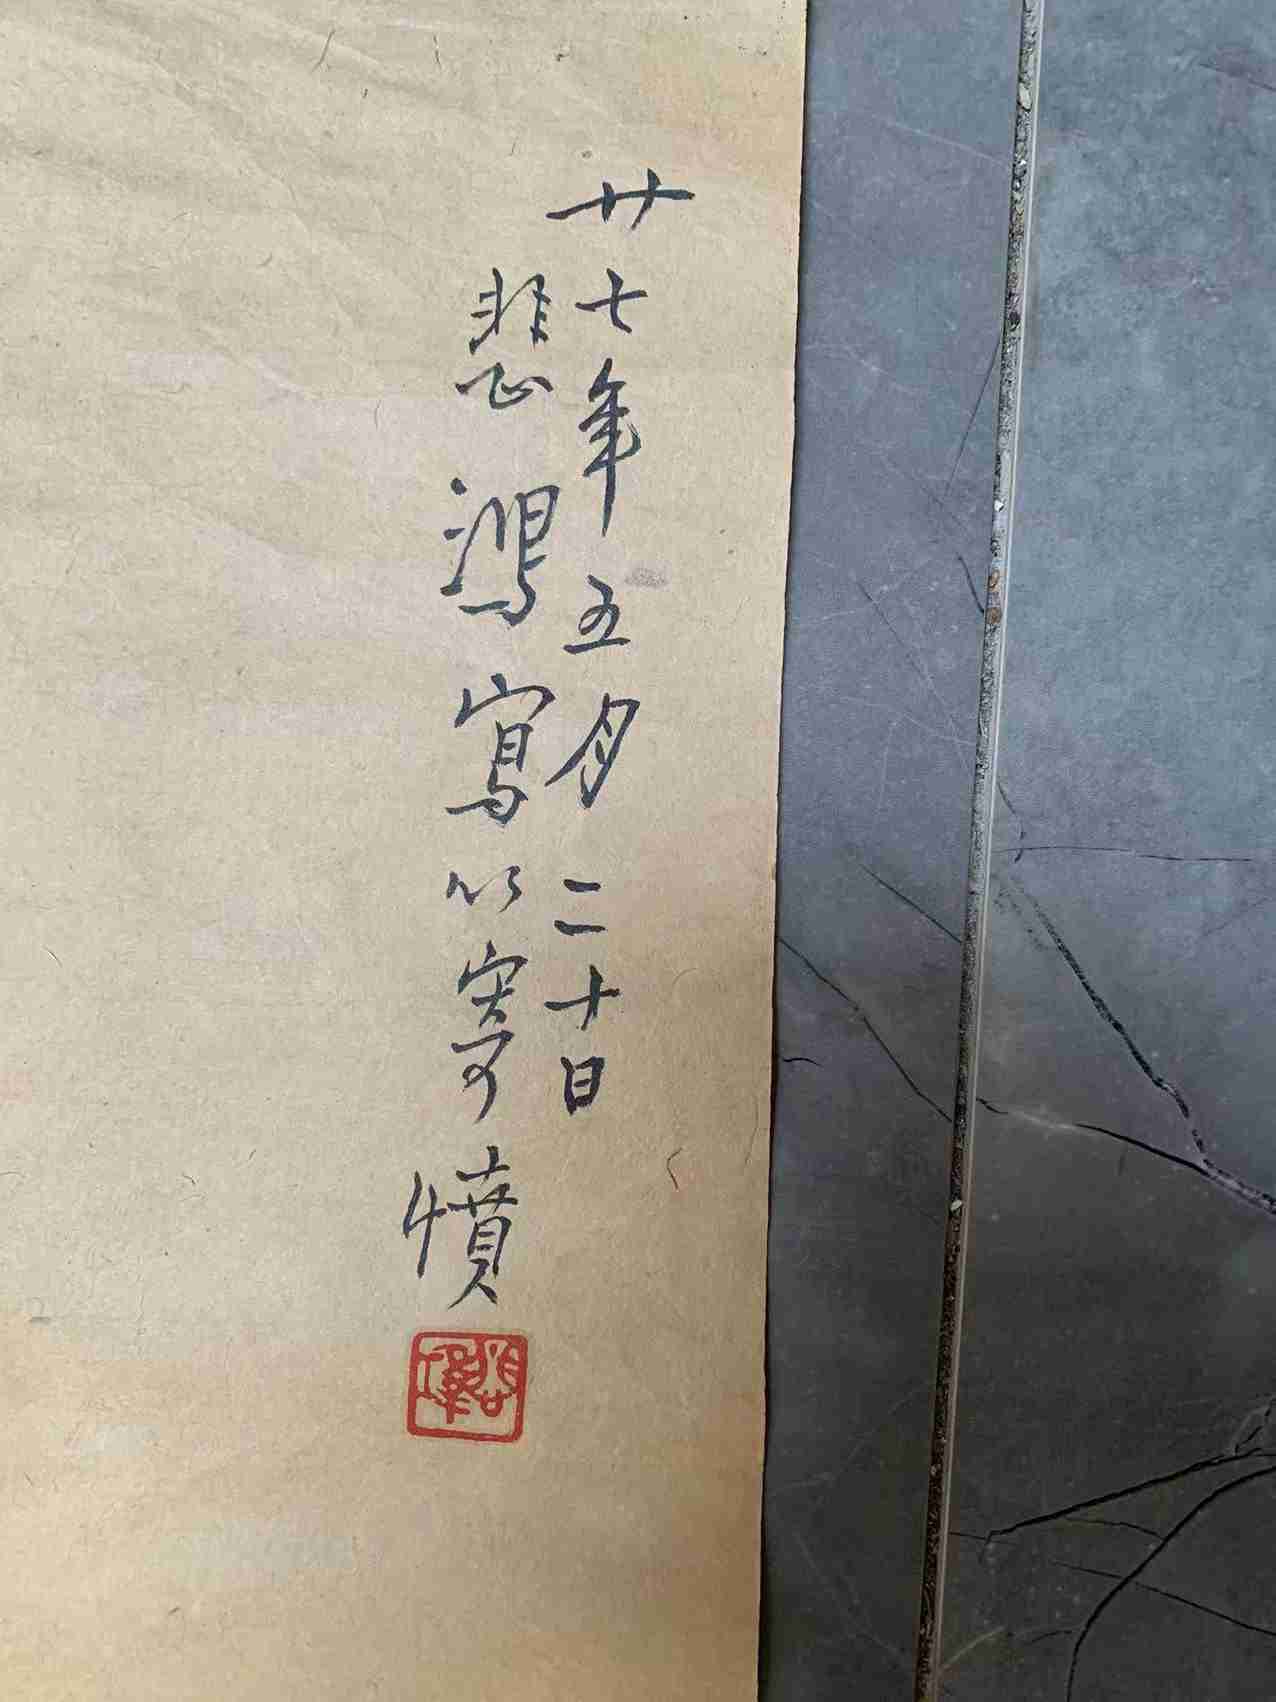 廿七年五月二十日
悲鴻寫以寄憤